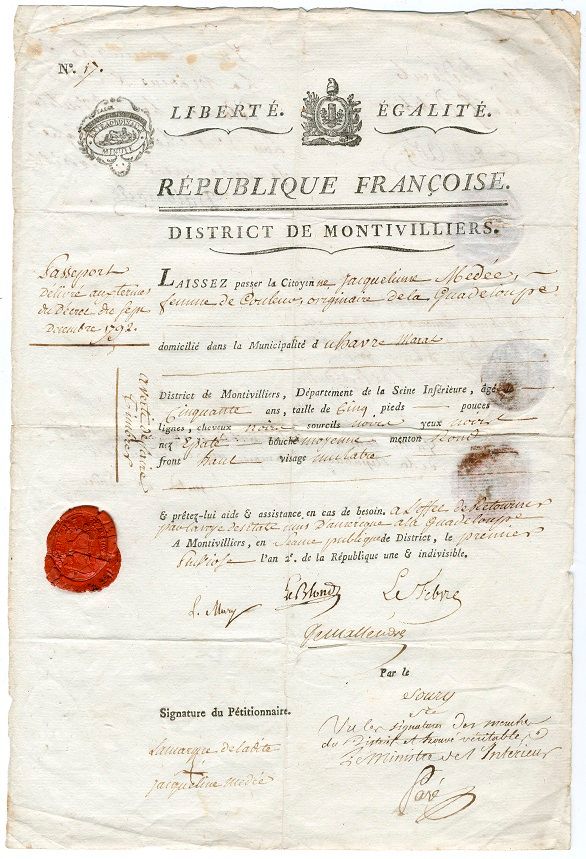 N°. 17.
LIBERTÉ. ÉGALITÉ.
RÉPUBLIQUE FRANÇOISE.
DISTRICT DE MONTIVILLIERS.
Passeport
délivré aux termes
du Décret du sept
Decembre 1792.
LAISSEZ passer la Citoyenne Jacqueline Medée,
femme de Couleur, originaire de la Guadeloupe
domicilié dans la Municipalité d u havre marat
District de Montivilliers, Département de la Seine Inférieure, âgée
Cinquante ans, taille de Cinq pieds pouces
lignes, cheveux noirs sourcils noirs yeux noirs
nez Epaté bouche moyenne menton rond
front haut visage mulatre
& prêtez-lui aide & assistance en cas de besoin. a l'effet de Retourner
par la voye des etats unis D'amerique a la Guadeloupe
A Montivilliers, en Seance publique de District, le premier
l'an 2e. de la République une & indivisible.
Le Blond Le Febvre
Par le
Signature du Pétitionnaire.
Vu les signatures des membres
du District et trouvé véritables
Le Ministre de l'Intérieur
Paré
La marque de ladite
Jacqueline medée